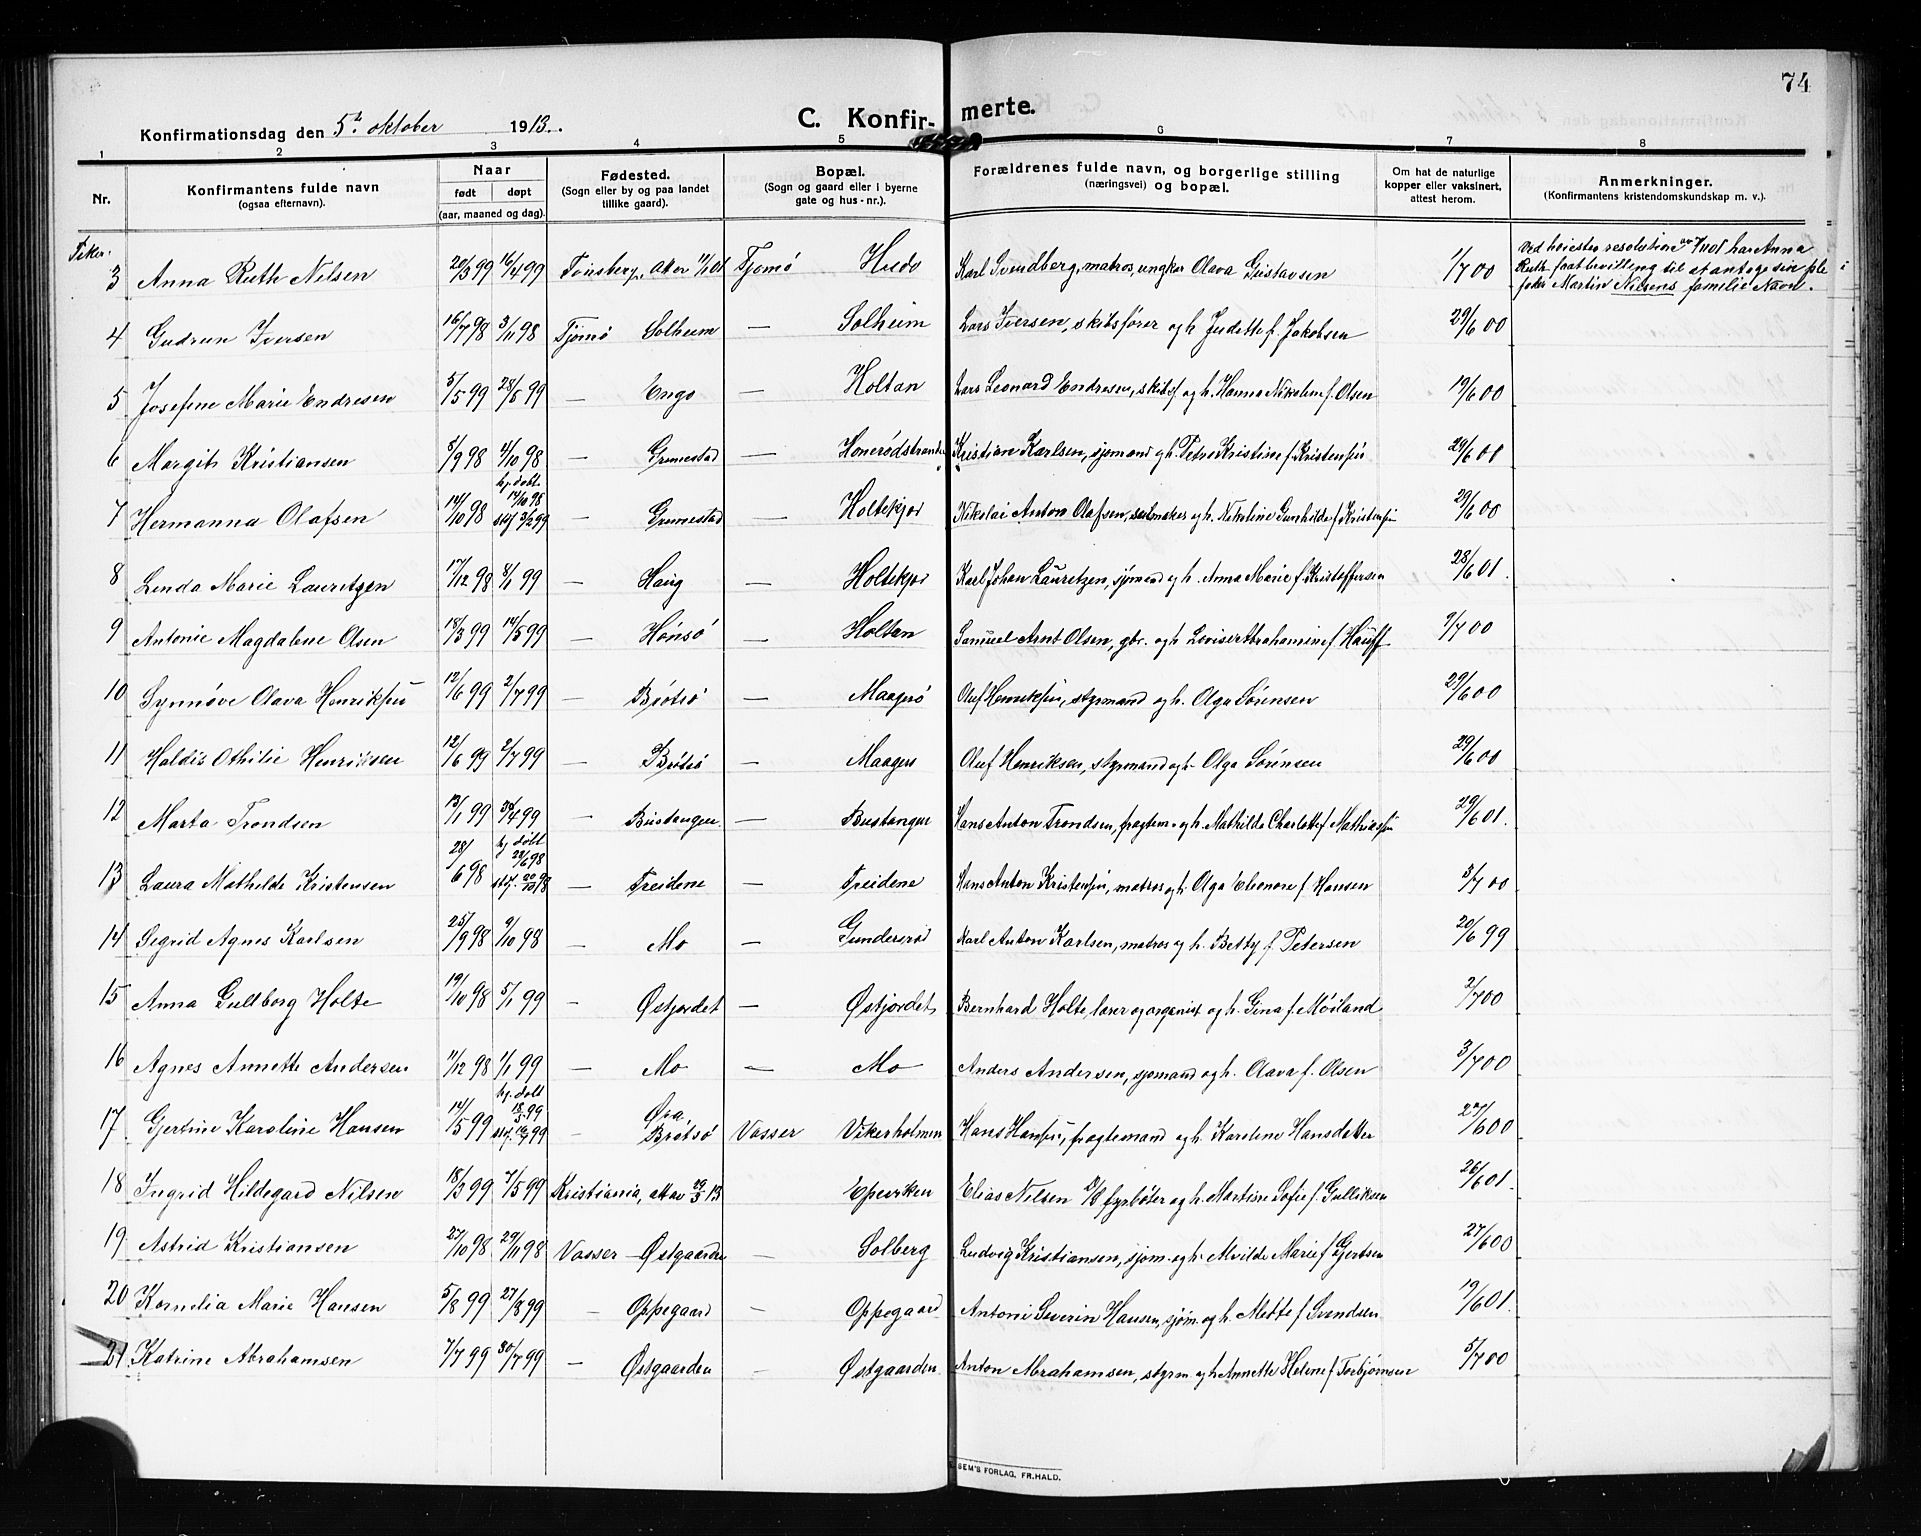 74
Konfirmationsdag den 5te oktober 1913.
C. Konfirmerte.
1 2 3 4 5 6 7 8
Nr.
Konfirmantens fulde navn
(ogsaa efternavn).
Naar
født døpt
(aar, maaned og dag).
Fødested.
(Sogn eller by og paa landet
tillike gaard).
Bopæl.
(Sogn og gaard eller i byerne
gate og hus-nr.).
Forældrenes fulde navn, og borgerlige stilling
(næringsvei) og bopæl.
Om hat de naturlige
kopper eller vaksinert,
attest herom.
Anmerkninger.
(Konfirmantens kristendomskundskap m. v.).
3 Anna Ruth Nilsen 20/3 99 16/4 99 Tønsberg, Tjømø Hudo Karl Svendberg, matros, ungkar Olava Gustavsen 1/7 00
har Anna
Ruth faat bevilling til at antage sin ple
Martin Nilsens familie Navn.
4 Gudrun Iversen 16/7 98 3/11 98 Tjømø Solheim — Solheim Lars Iversen, skibsfører og h. Judette f. Jakobsen 29/6 00
5 Josefine Marie Endresen 5/5 99 28/5 99 — Engo — Holtan Lars Leonard Endresen, skibsf og h. Hanna Nikoline f. Olsen 19/6 00
6 Margit Kristiansen 5/9 98 4/10 98 — Grimestad — Honerødstranden Kristian Karlsen, sjømand og h. Petra Kristine f. Kristensen 29/6 01
7 Hermanna Olafsen 14/10 98 hj. døbt 14/10 98 stf 2/2 99 — Grimestad — Holtekjær Nikolai Anton Olafsen, seilmaker og h. Nikoline Gunhilde f. Kristensen 29/6 00
8 Linda Marie Lauritzen 17/12 98 8/1 99 — Haug — Holtekjær Karl Johan Lauretzen, sjømand og h. Anna Marie f. Kristoffersen 28/6 01.
9 Antonie Magdalene Olsen 18/3 99 14/5 99 — Hønsø — Holtan Samuel Arnt Olsen, gbr. og h. Lovise Abrahamine f. Hauff 9/7 00
10 Synnøve Olava Henriksen 12/6 99 2/7 99 — Brøtsø — Maagerø Oluf Henriksen, styrmand og h. Olga Sørensen 29/6 00
11 Haldis Othilie Henriksen 12/6 99 2/7 99 — Brøtsø — Maagerø Oluf Henriksen, styrmand og h. Olga Sørensen 29/6 00
12 Marta Trondsen 13/1 99 30/4 99 — Bustangen — Bustangen Hans Anton Trondsen, fragtem. og h. Mathilde Charlotte f. Mathiassen 29/6 01.
13 Laura Mathilde Kristensen 28/6 98 hj. døbt 28/6 98 — Treidene — Treidene Hans Anton Kristensen, matros og h. Olga Eleonore f. Hansen 3/7 00
14 Sigrid Agnes Karlsen 25/9 98 9/10 98 — Mo — Gunderød Karl Anton Karlsen, matros og h. Betty f. Petersen 20/6 99
15 Anna Gullborg Holte 19/10 98 5/1 99 — Østjordet — Østjordet Bernhard Holte, lærer og organist og h. Gina f. Møiland 2/7 00
16 Agnes Annette Andersen 11/12 98 1/1 99 — Mo — Mo Anders Andersen, sjømand og h. Olava f. Olsen 3/7 00
17 Gjertine Karoline Hansen 14/5 99 hj. døbt 18/5 99 — Øra Brøtsø Vasser Vikerholmen Hans Hansen, fragtemand og h. Karoline Hansdatter 27/6 00
18 Ingrid Hildegard Nilsen 18/3 99 7/5 99 Kristiania, attav 29/3 13 Epeviken Elias Nilsen fyrbøter og h. Martine Sofie f. Gulliksen 26/6 01.
19 Astrid Kristiansen 27/10 98 29/11 98 Vasser Østgaarden — Solberg Ludvig Kristiansen, sjøm. og h. Alvilde Marie f. Gjertsen 27/6 00
20 Kornelia Marie Hansen 5/8 99 27/8 99 — Oppegaard — Oppegaard Antoni Severin Hansen, sjøm. og h. Mette f. Svendsen 19/6 01.
21 Katrine Abrahamsen 7/7 99 30/7 99 — Østgaarden — Østgaarden Anton Abrahamsen, styrm og h. Annette Helene f. Torbjørnsen 5/7 00
SEM'S FORLAG, FR.HALD.